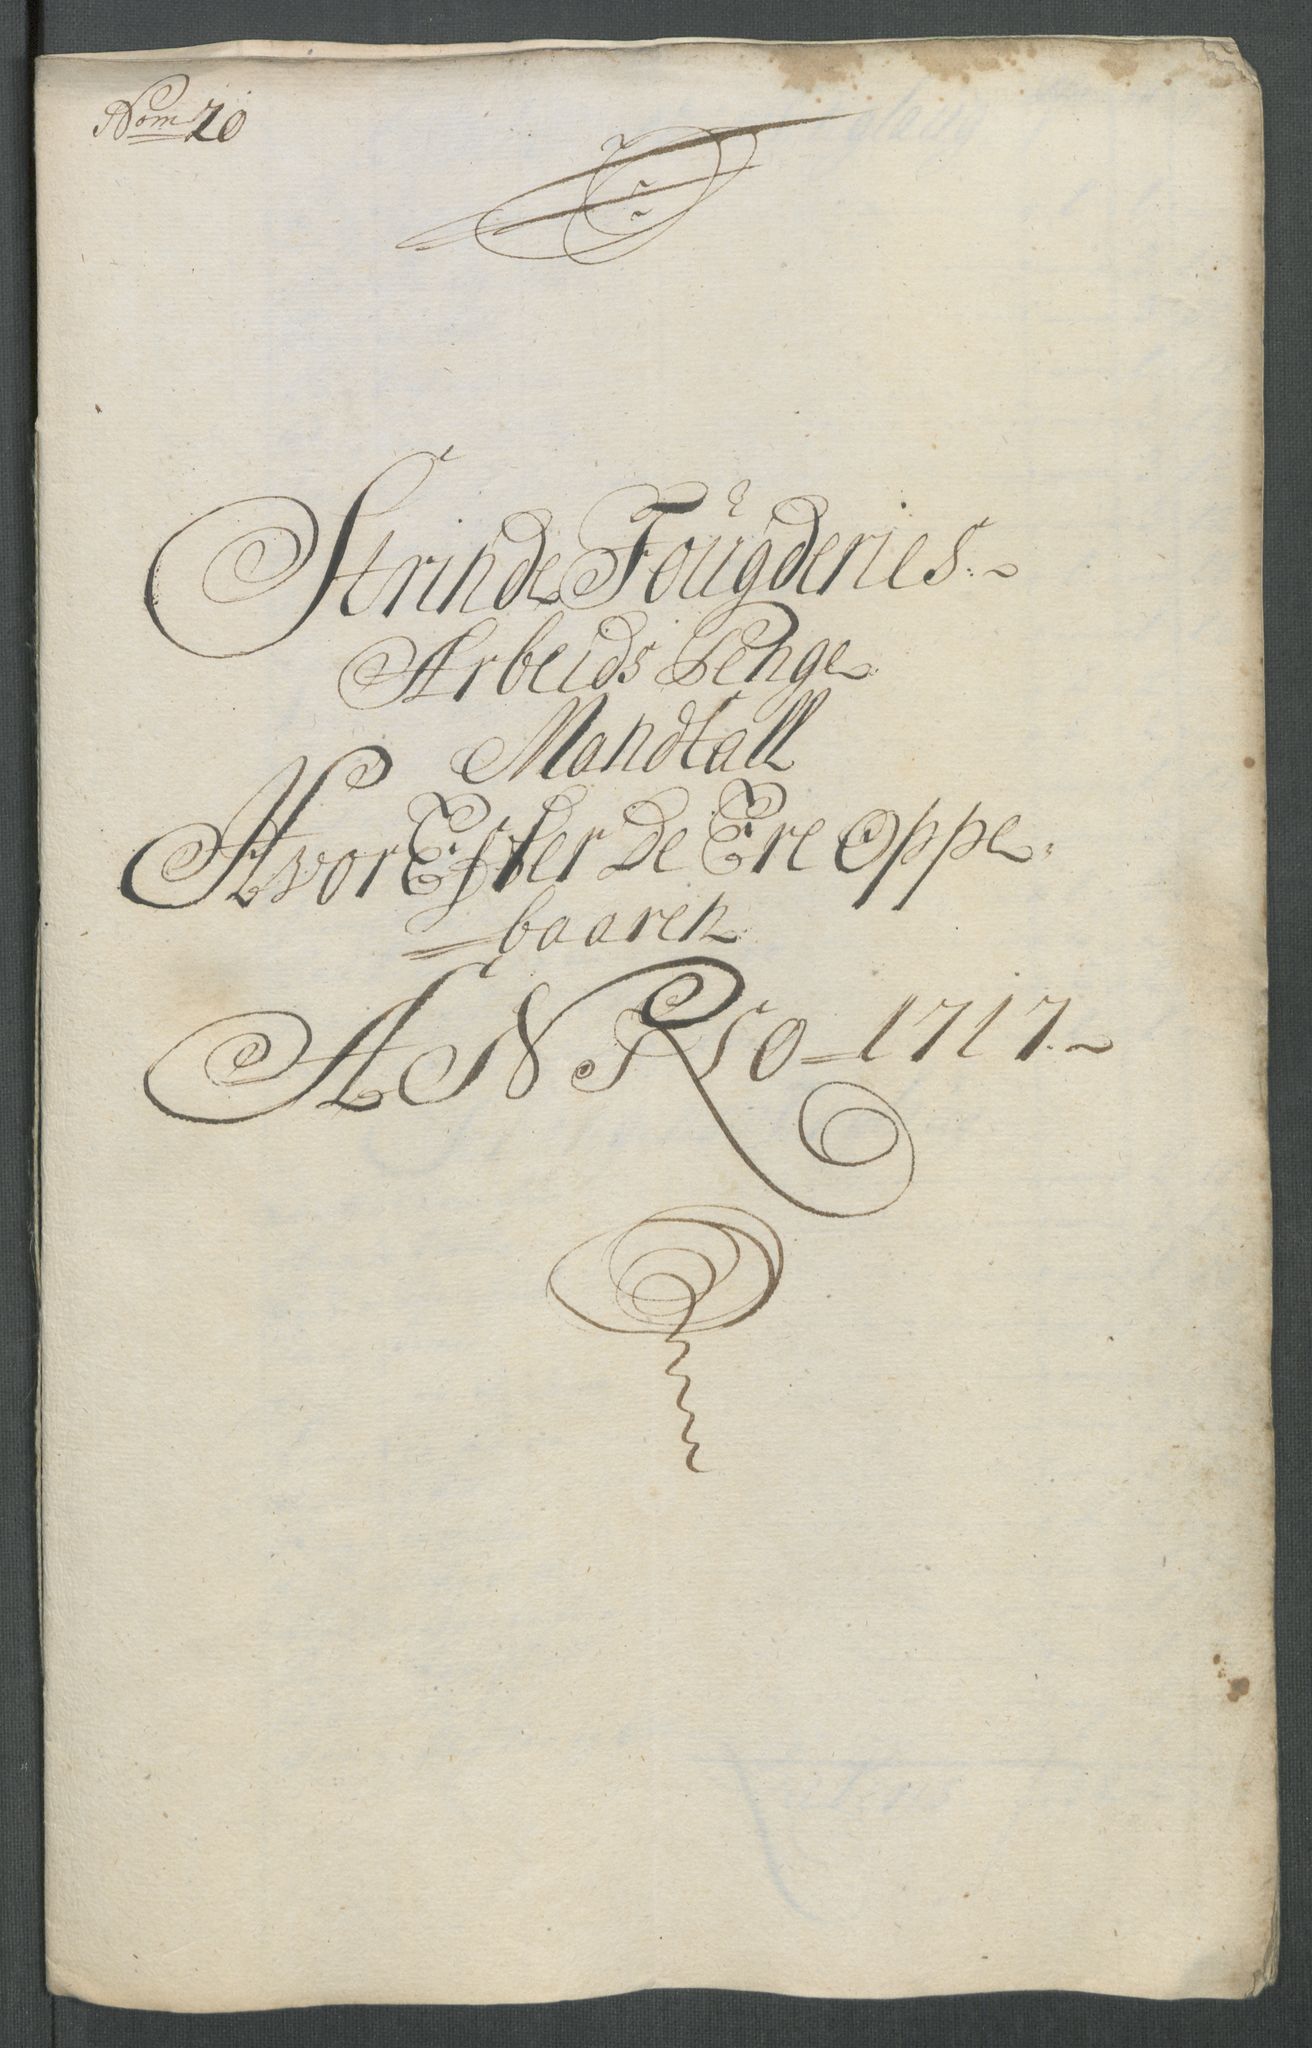 Nom 20
Strinde Fougderies
Arbeids Penge
Mandtall
Hvor Efter De Ere Oppe
baaren
ANNO 1717